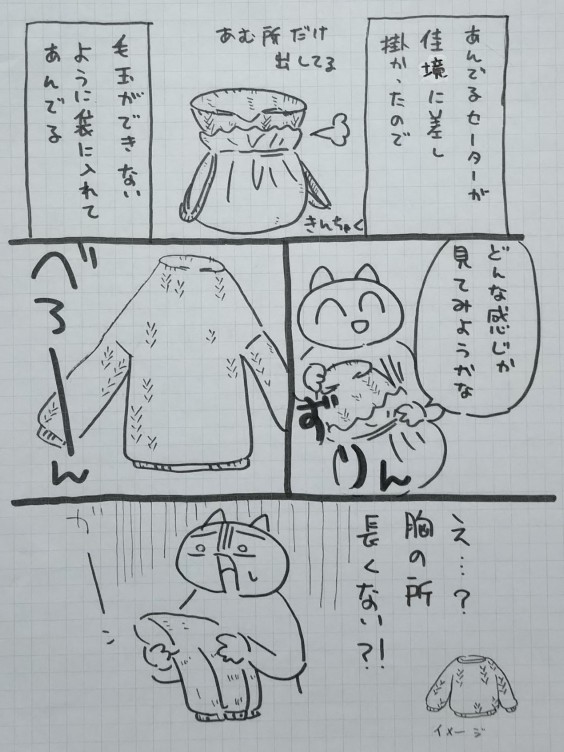 あんでるセーターが
佳境に差し
掛かったので
あむ所だけ
出してる
きんちゃく
毛玉ができない
ように袋に入れて
あんでる
どんな感じか
見てみようかな
ずりん
べろーん
え…?
胸の所
長くない?!
ガーン
イメージ